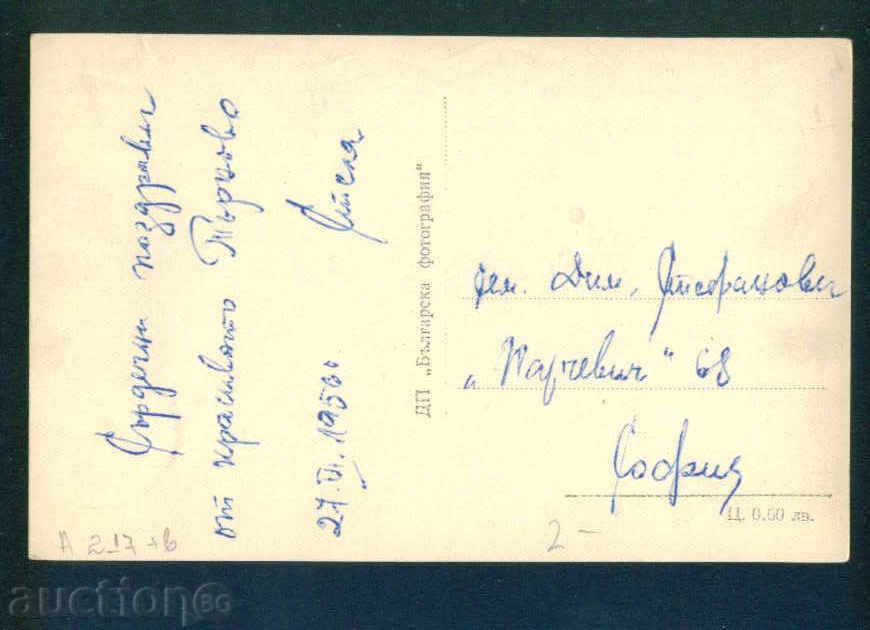 Сърдечни поздрави
от красивото Търново
27.VI.1956.
ДП „Български фотография"
сем. Дим. Стефанови
„Парчевич" 68
София
Ц. 0.60 лв.
А 217
2 –
auctionBG